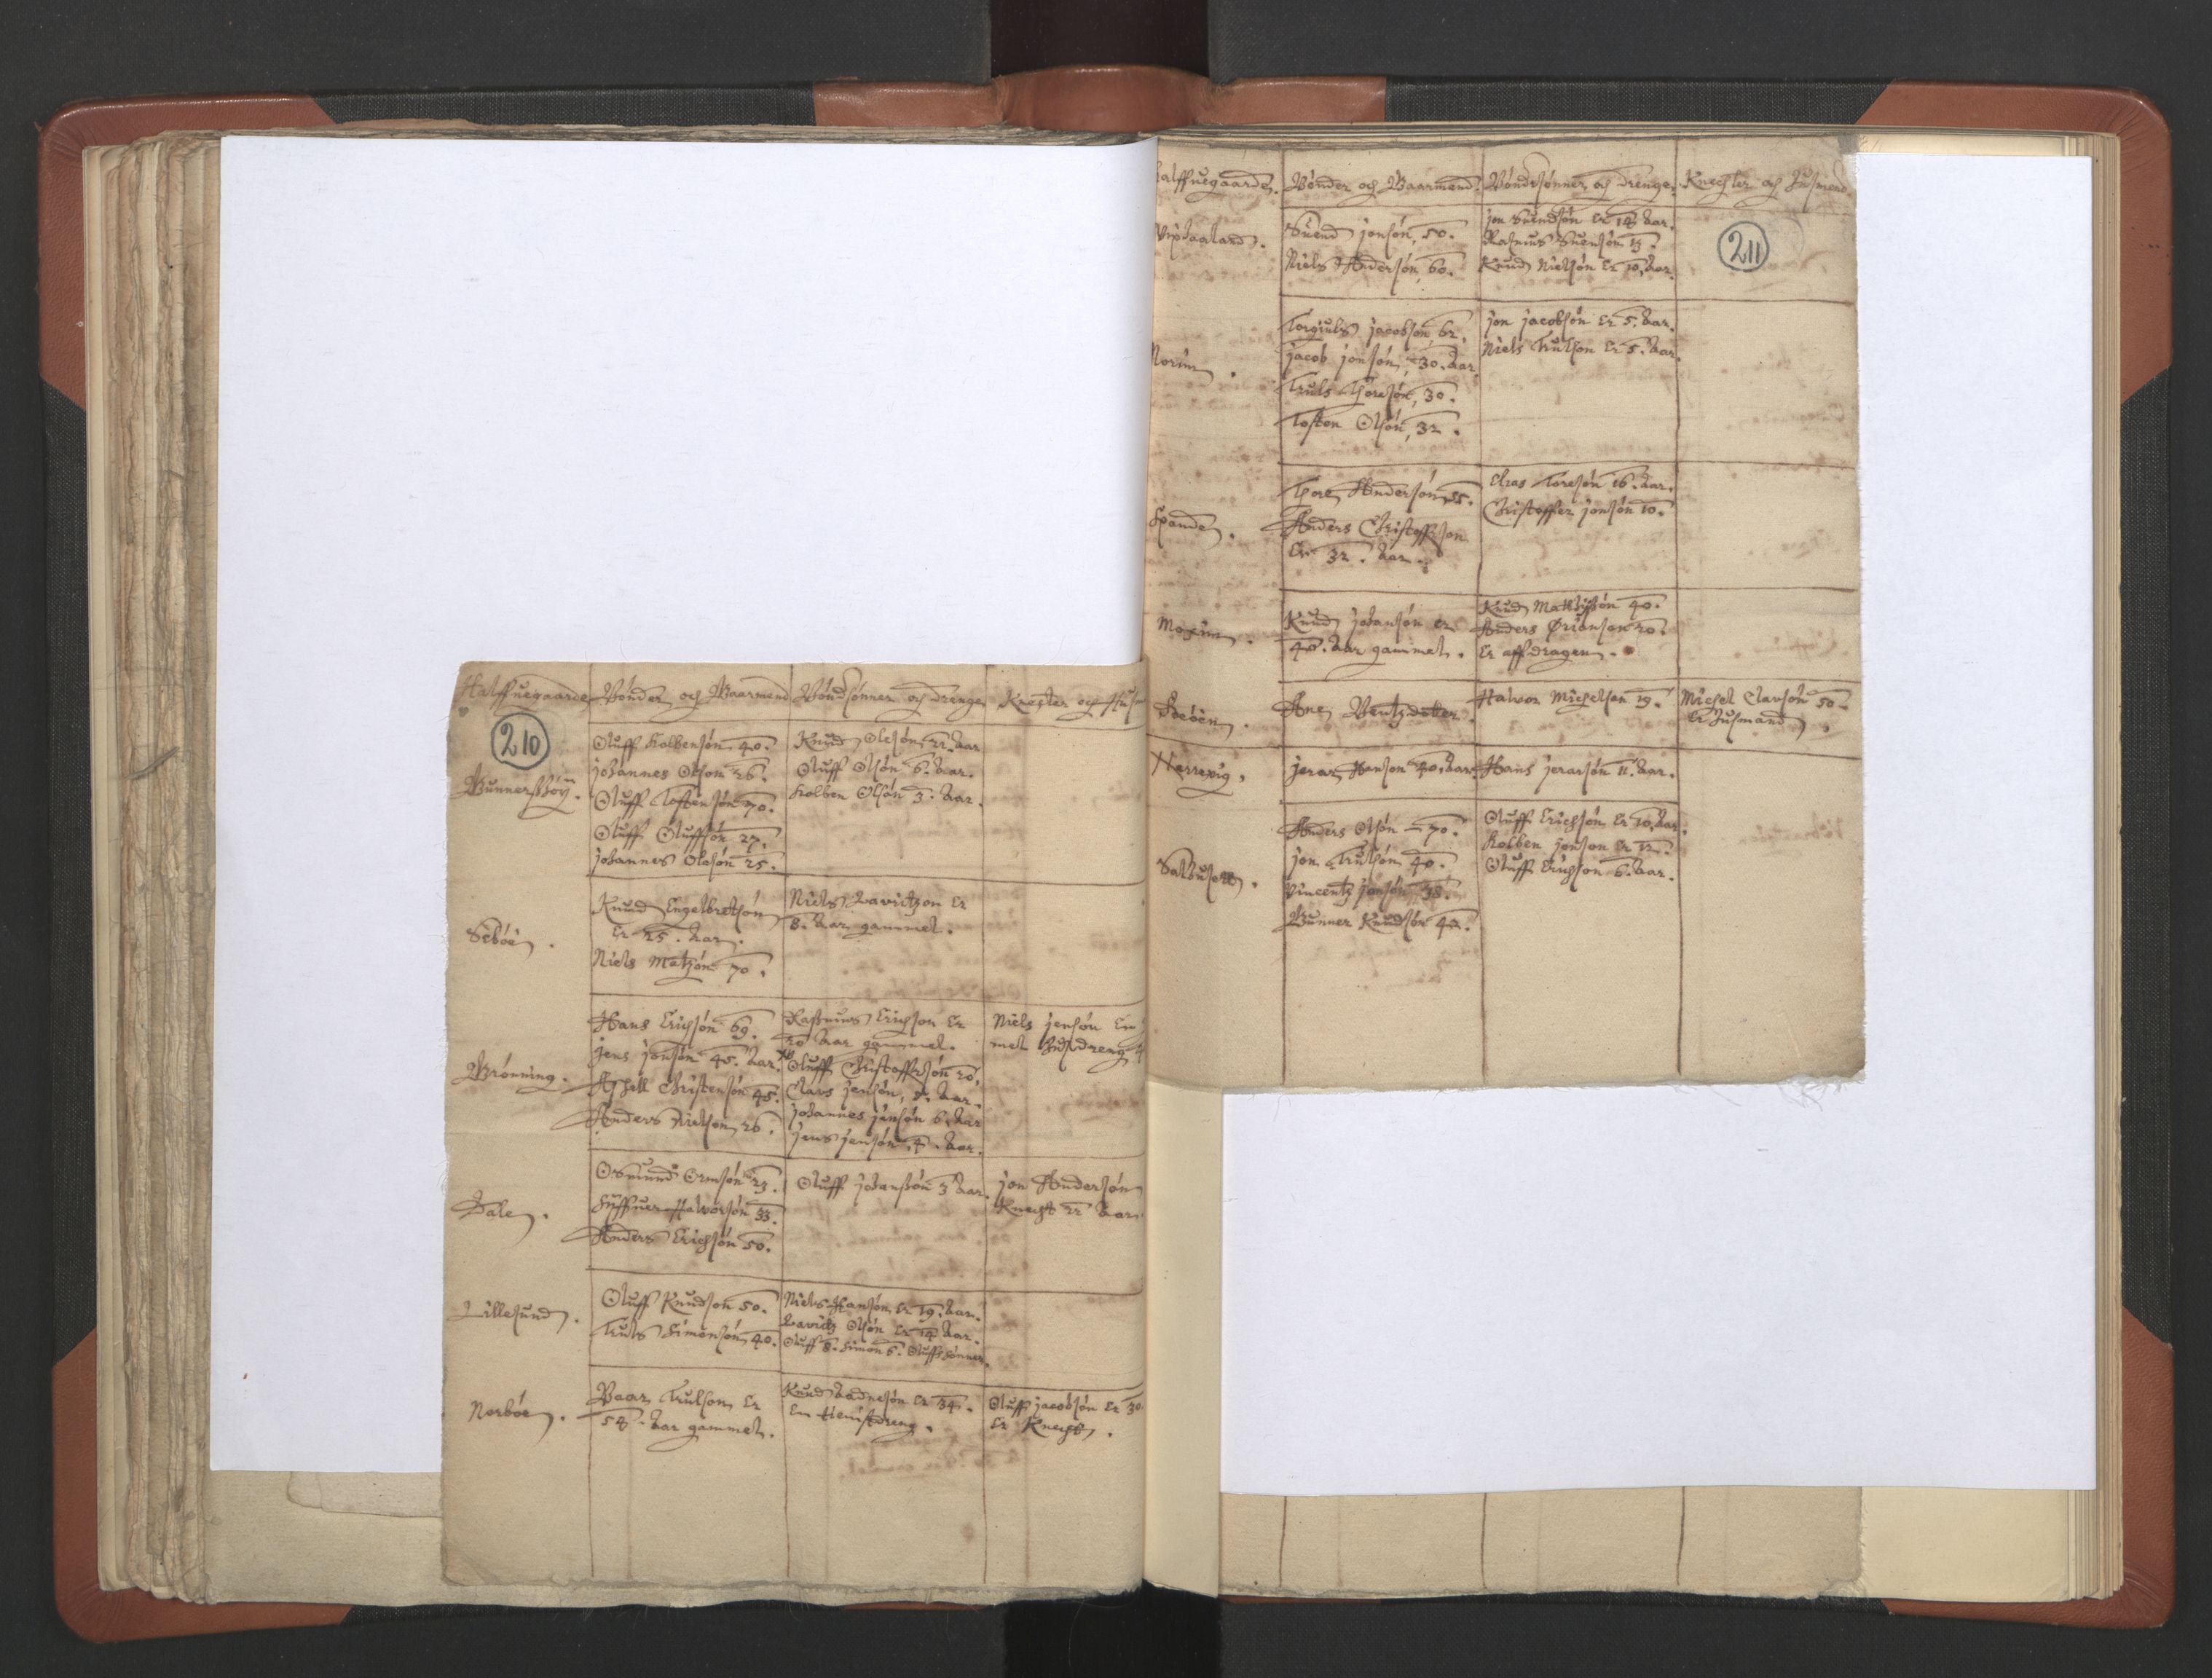 Halffuegaarde Bønder och Baarmend Bøndsønner och drenge Knegter och Hus
210
Gunnersbøy .
Oluff Kolbensøn 40 .
Johannes Olson 26 .
Oluff Tostensøn 70 .
Oluff Oluffsøn 27 .
Johannes Olesøn 25 .
Knud Olesøn 22 . Aar
Oluff Olsøn 6 . Aar .
Kolben Olsøn 3 . Aar .
Sebøe .
Knud Engelbretsøn
Er 25 . Aar .
Niels Matzøn 70 .
Niels Lavritzon Er
8 . Aar gammel .
Grønning .
Hans Erichsøn 69 .
Jens Jonsøn 45 . Aar
Aschell Christensøn 45 .
Anders Nielson 26 .
Rasmus Erichson Er
20 Aar gammel .
Oluff Christoffersøn 20 .
Claus Jensøn , 8 . Aar .
Johannes Jensøn 6 . Aar
Jens Jensøn , 4 . Aar .
Niels Jensøn En
mel Husdreng
Dale .
Osmund Ormsøn 23 .
Siffuer Halvorsøn 33 .
Anders Erichsøn 50 .
Oluff Johansøn 3 Aar .
Jon Andersøn
Knecht 22 Aar
Lillesund .
Oluff Knudson 50 .
Truls Simensøn 40 .
Niels Hansøn Er 19 . Aar .
Lavritz Olsøn Er 14 Aar .
Oluff 8 . Simon 6 . Oluffs sønner .
Norbøe .
Baar Trulson Er
58 . Aar gammel .
Knud Aadnesøn Er 34 .
En tienistdreng .
Oluff Jacobsøn Er 30
Er Knecht .
alffuegaarde . Bønder och Baarmend . Bøndesønner och drenge . Knegter och Husmend .
211
Opsaland .
Suend Jonsøn , 50 .
Niels Andersøn , 60 .
Jon Suendsøn Er 18 Aar .
Rasmus Suensøn 13 .
Knud Nielsøn Er 10 . Aar .
Norim .
Torgiuls Jacobson 62 .
Jacob Jonsøn , 30 . Aar
Truls Thoresøn , 30 .
Tosten Olsøn , 32 .
Jon Jacobsøn Er 5 . Aar .
Niels Trulson Er 5 . Aar .
Spande .
Thore Andersøn 55 .
Anders Christoffson
Er 32 . Aar .
Elias Toresøn 16 . Aar .
Christoffer Jonsøn 10 .
Moxim .
Knud Johansøn Er
40 . Aar gammel .
Knud Mattissøn 40 .
Anders Ørianson 20 .
Er aff dragen .
Bøen .
Ane Bentzdotter
Halvor Michelsen 19 .
Michel Clavsøn 50
Er Husmand .
Narrevig .
Jerar Hanson 40 . Aar
Hans Jerarsøn 11 . Aar .
Salhus .
Anders Olsøn - 70 .
Jon Trulsøn 40 .
Vincentz Jonsøn 38 .
Gunner Knudsøn 42 .
Oluff Erichsøn Er 10 . Aar .
Kolben Jonson Er 12 .
Oluff Erichson 6 . Aar .